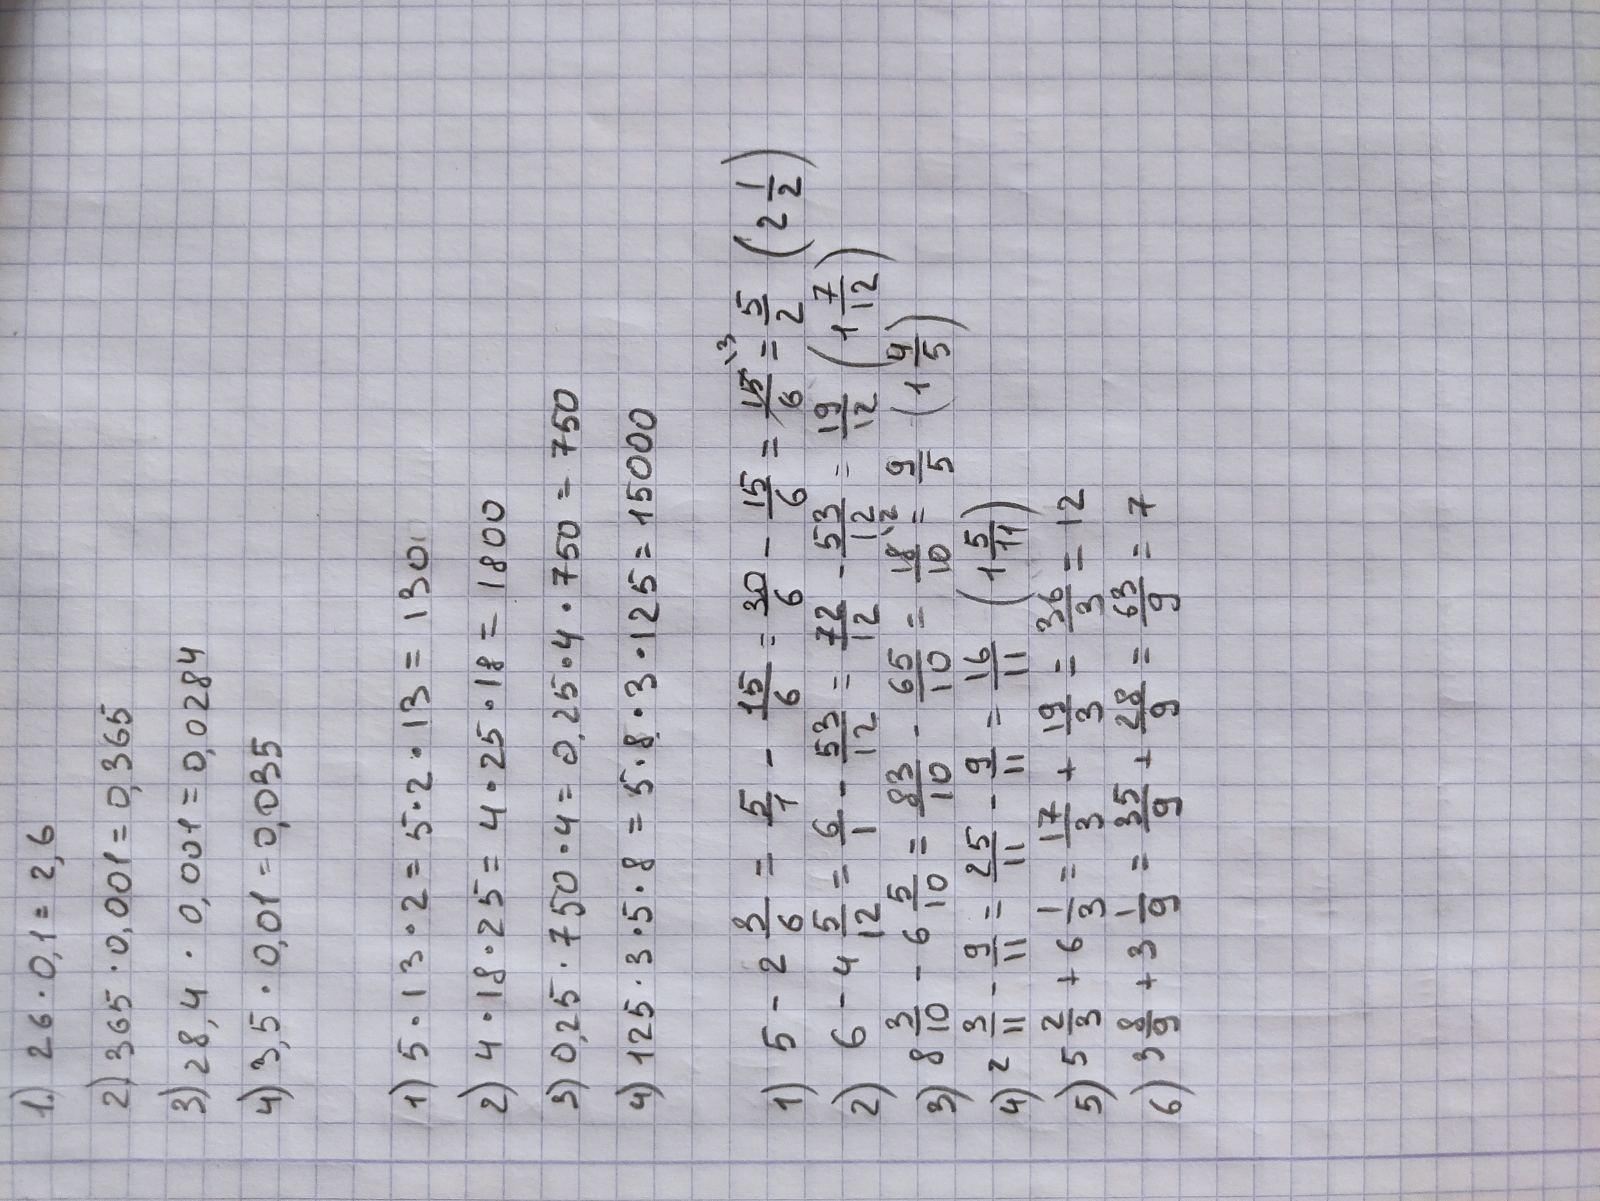 1.) 26 · 0,1 = 2,6
2) 365 · 0,001 = 0,365
3) 28,4 · 0,001 = 0,0284
4) 3,5 · 0,01 = 0,035
1) 5 · 13 · 2 = 5 · 2 · 13 = 130
2) 4 · 18 · 25 = 4 · 25 · 18 = 1800
3) 0,25 · 750 · 4 = 0,25 · 4 · 750 = 750
4) 125 · 3 · 5 · 8 = 5 · 8 · 3 · 125 = 15000
1) 5 - 2 3/6 = 5/1 - 15/6 = 30/6 - 15/6 = 15\3/6 = 5/2 (2 1/2)
2) 6 - 4 5/12 = 6/1 - 53/12 = 72/12 - 53/12 = 19/12 (1 7/12)
3) 8 3/10 - 6 5/10 = 83/10 - 65/10 = 18\2/10 = 9/5 (1 4/5)
4) 2 3/11 - 9/11 = 25/11 - 9/11 = 16/11 (1 5/11)
5) 5 2/3 + 6 1/3 = 17/3 + 19/3 = 36/3 = 12
6) 3 8/9 + 3 1/9 = 35/9 + 28/9 = 63/9 = 7